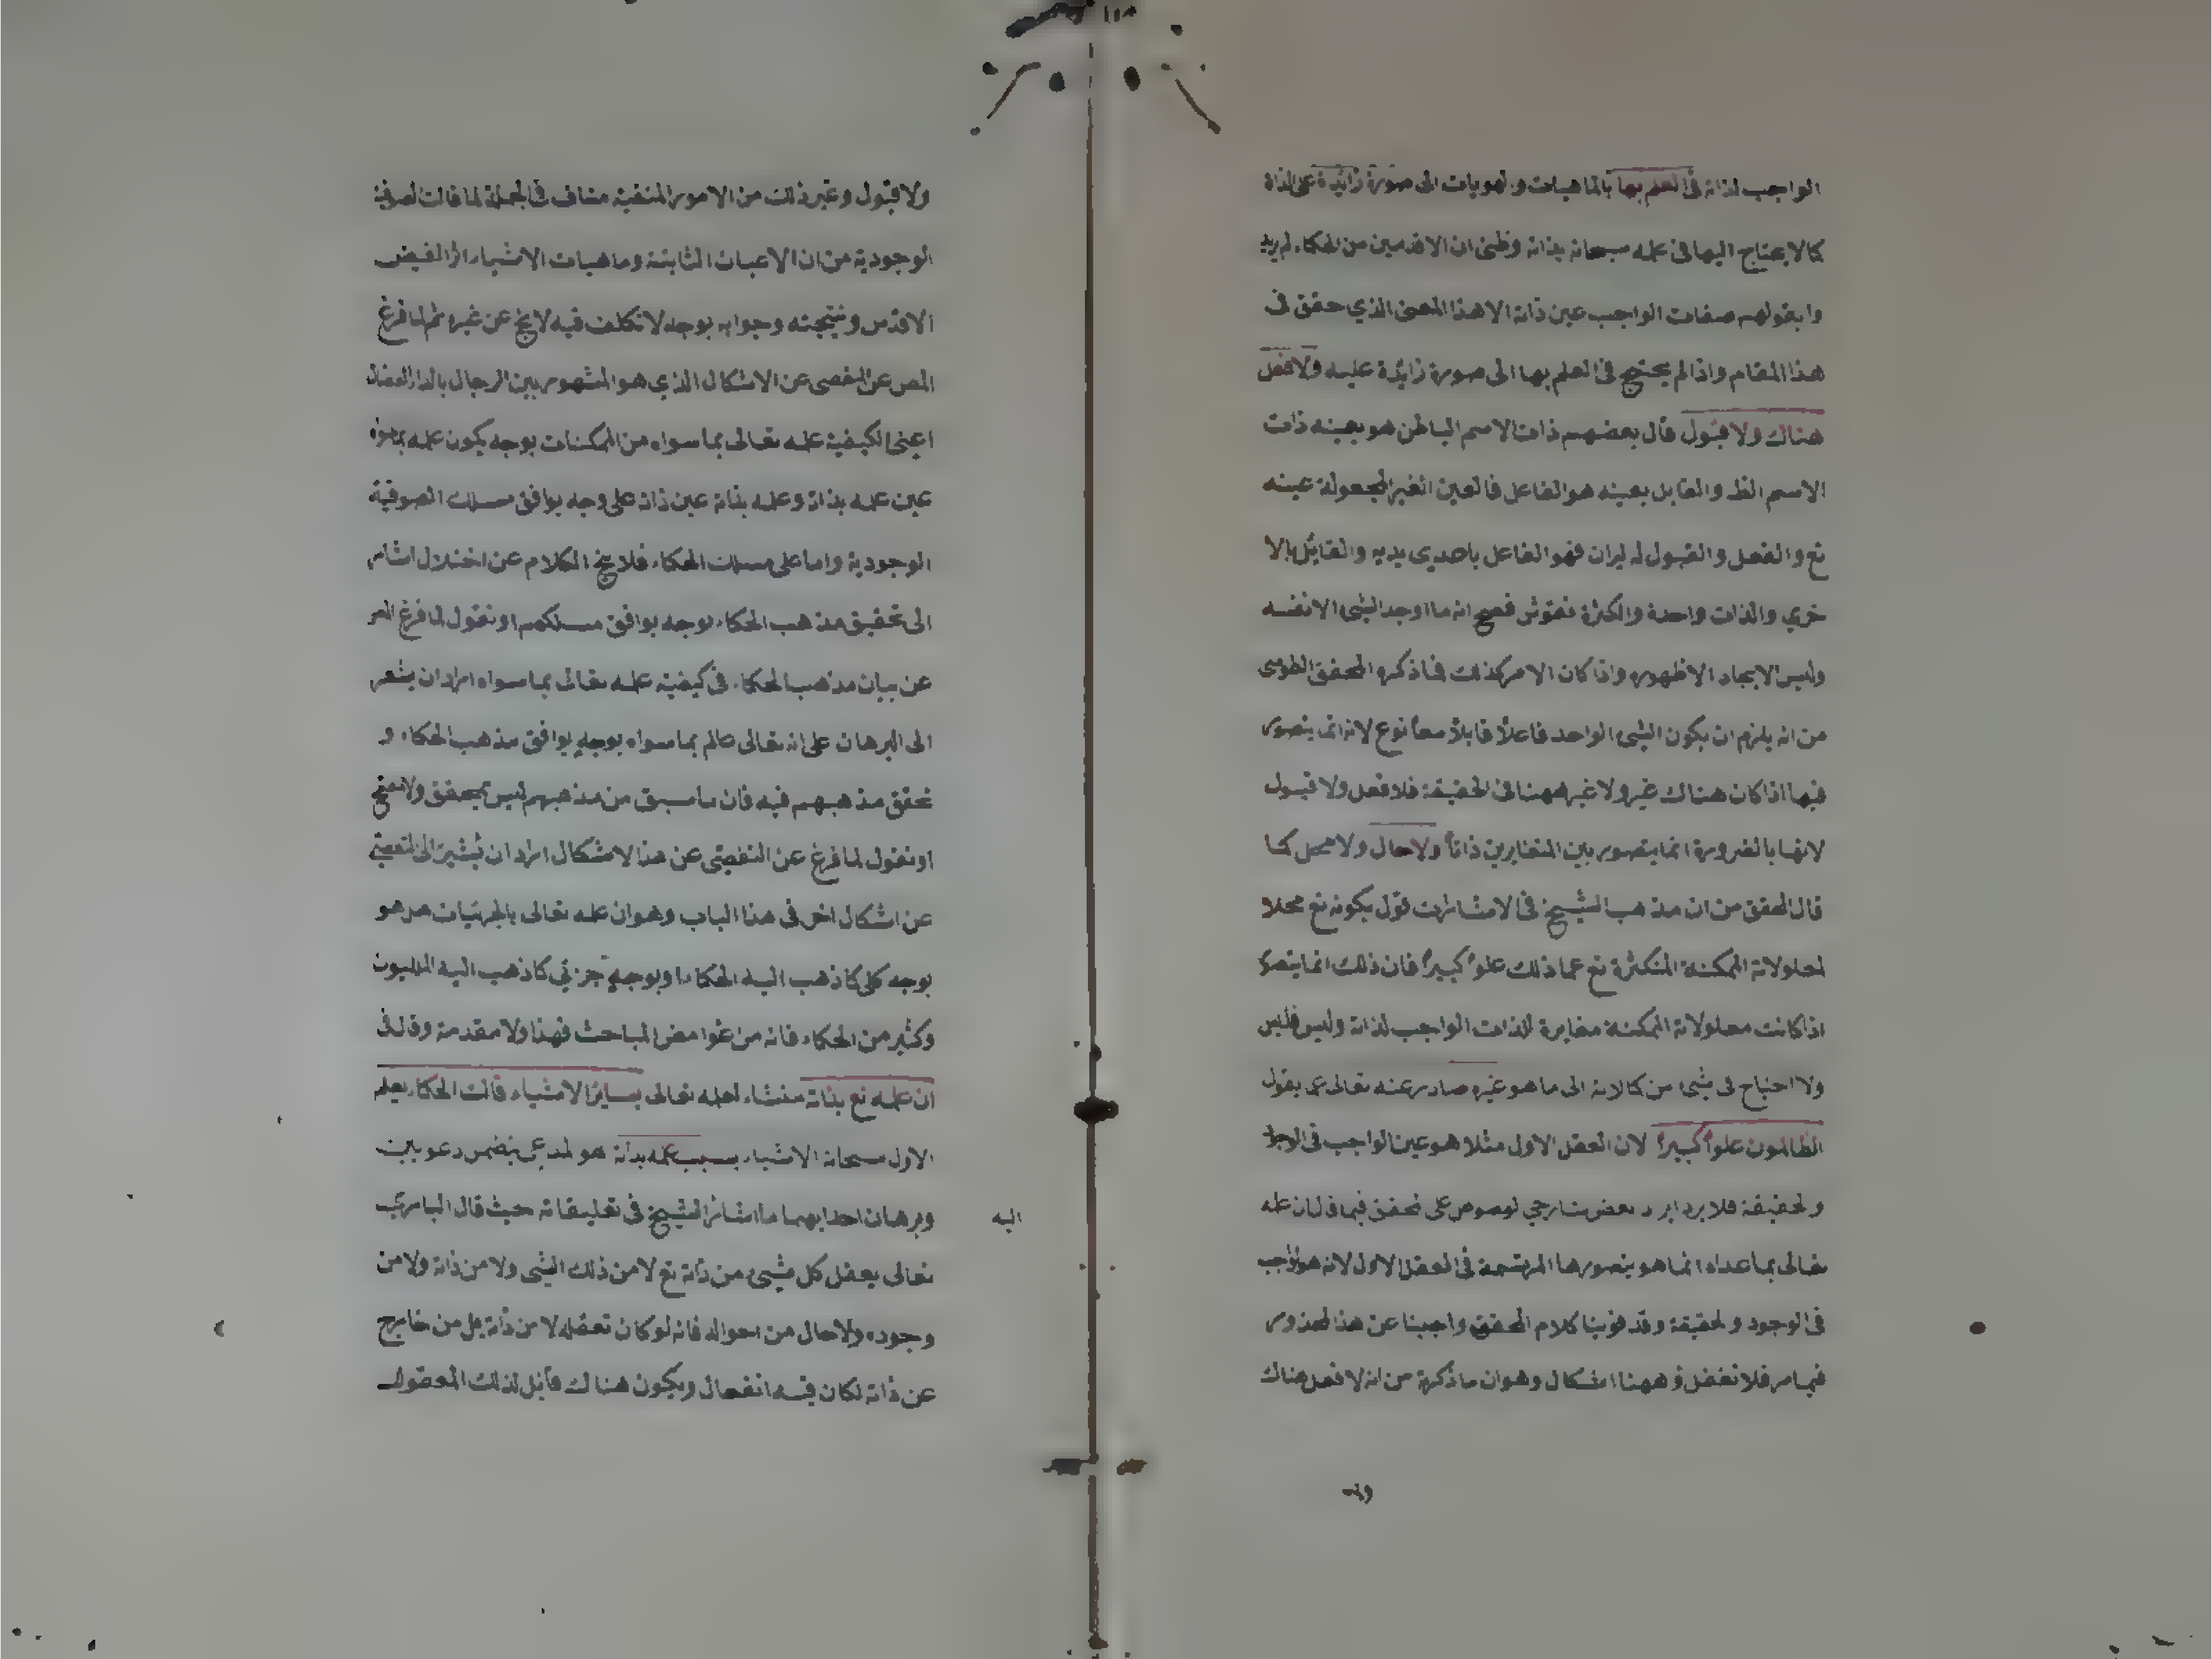 الواجب لذاته في العلم بها بالماهيات والهويات الى صورة زائدة على الذات
كما لا يحتاج اليها في علمه سبحانه بذاته وظني ان الاقدمين من الحكماء لم يريد
وا بقولهم صفات الواجب عين ذاته الا هذا المعنى الذي حقق في
هذا المقام واذا لم يحتج في العلم بها الى صورة زائدة عليه ولا فعل
هناك ولا قبول قال بعضهم ذات الاسم الباطن هو بعينه ذات
الاسم الظ والقابل بعينه هو الفاعل فالعين الغير المجعولة عينه
تع والفعل والقبول له يدان فهو الفاعل باحدى يديه والقابل بالا
خرى والذات واحدة والكثرة نقوش فصح انه ما اوجد الشئ الا نفسه
وليس الايجاد الا ظهوره واذا كان الامر كذلك فما ذكره المحقق الطوسى
من انه يلزم ان يكون الشئ الواحد فاعلاً قابلاً معاً نوع لانه انما يتصور
فيها اذا كان هناك غير ولا غير ههنا في الحقيقة فلا فعل ولا قبول
لانها بالضرورة انما يتصور بين المتغايرين ذاتاً ولا حال ولا محل كما
قال المحقق من ان مذهب الشيخ في الاشارات قول بكونه تع محلا
لمعلولاته الممكنة المتكثرة تع عما ذلك علواً كبيراً فان ذلك انما يتصور
اذا كانت معلولاته الممكنة مغايرة للذات الواجب لذاته وليس فليس
ولا احتياج في شئ من كمالاته الى ما هو غيره صادر عنه تعالى عما يقول
الظالمون علواً كبيراً لان العقل الاول مثلا هو عين الواجب في الوجود
والحقيقة فلا يرد ايراد بعض شارحي لفصوص على المحقق فيما قال ان علمه
تعالى بما عداه انما هو بتصورها المرتسمة في العقل الاول لانه هو الواجب
في الوجود والحقيقة وقد قوينا كلام المحقق واجبنا عن هذا المحذور
فيما مر فلا تغفل وههنا اشكال وهو ان ما ذكرته من انه لا فعل هناك
ولا قبول وغير ذلك من الامور المنفية مناف في الجملة لما قالت الصوفية
الوجودية من ان الاعيان الثابتة وماهيات الاشياء اثر الفيض
الاقدس ونتيجته وجوابه بوجه لا تكلف فيه لا يخ عن غيره ثم لما فرغ
المص عن التفصى عن الاشكال الذي هو المشهور بين الرجال بالداء العضال
اعنى الكيفية علمه تعالى بما سواه من الممكنات بوجه يكون علمه بما سواه
عين علمه بذاته وعلمه بذاته عين ذاته على وجه يوافق مسلك الصوفية
الوجودية واما على مسلك الحكماء فلا يخ الكلام عن اختلال اشار
الى تحقيق مذهب الحكماء بوجه يوافق مسلكهم او نقول لما فرغ المص
عن بيان مذهب الحكماء في كيفية علمه تعالى بما سواه اراد ان يشعر
الى البرهان على انه تعالى عالم بما سواه بوجه يوافق مذهب الحكماء و
تحقق مذهبهم فيه فان ما سبق من مذهبهم ليس بمحقق ولا منقح
او نقول لما فرغ عن التفصّى عن هذا الاشكال اراد ان يشير الى التفصّي
عن اشكال اخر في هذا الباب وهو ان علمه تعالى بالجزئيات هل هو
بوجه كلى كما ذهب اليه الحكماء او بوجه جزئي كما ذهب اليه المليون
وكثير من الحكماء فانه من غوامض المباحث فهذا ولا مقدمة وقال في
ان علمه تع بذاته منشاء لعلمه تعالى بسائر الاشياء قالت الحكماء يعلم
الاول سبحانه الاشياء بسبب علمه بذاته هو المدعى يتضمن دعويين
وبرهان احدايهما ما اشار الشيخ في تعليقاته حيث قال البارى
اليه
تعالى يعقل كل شئ من ذاته تع لا من ذلك الشى ولا من ذاته ولا من
وجوده ولا حال من احواله فانه لو كان تعقله لا من ذاته بل من خارج
عن ذاته لكان فيه انفعال ويكون هناك قابل لذلك المعقول